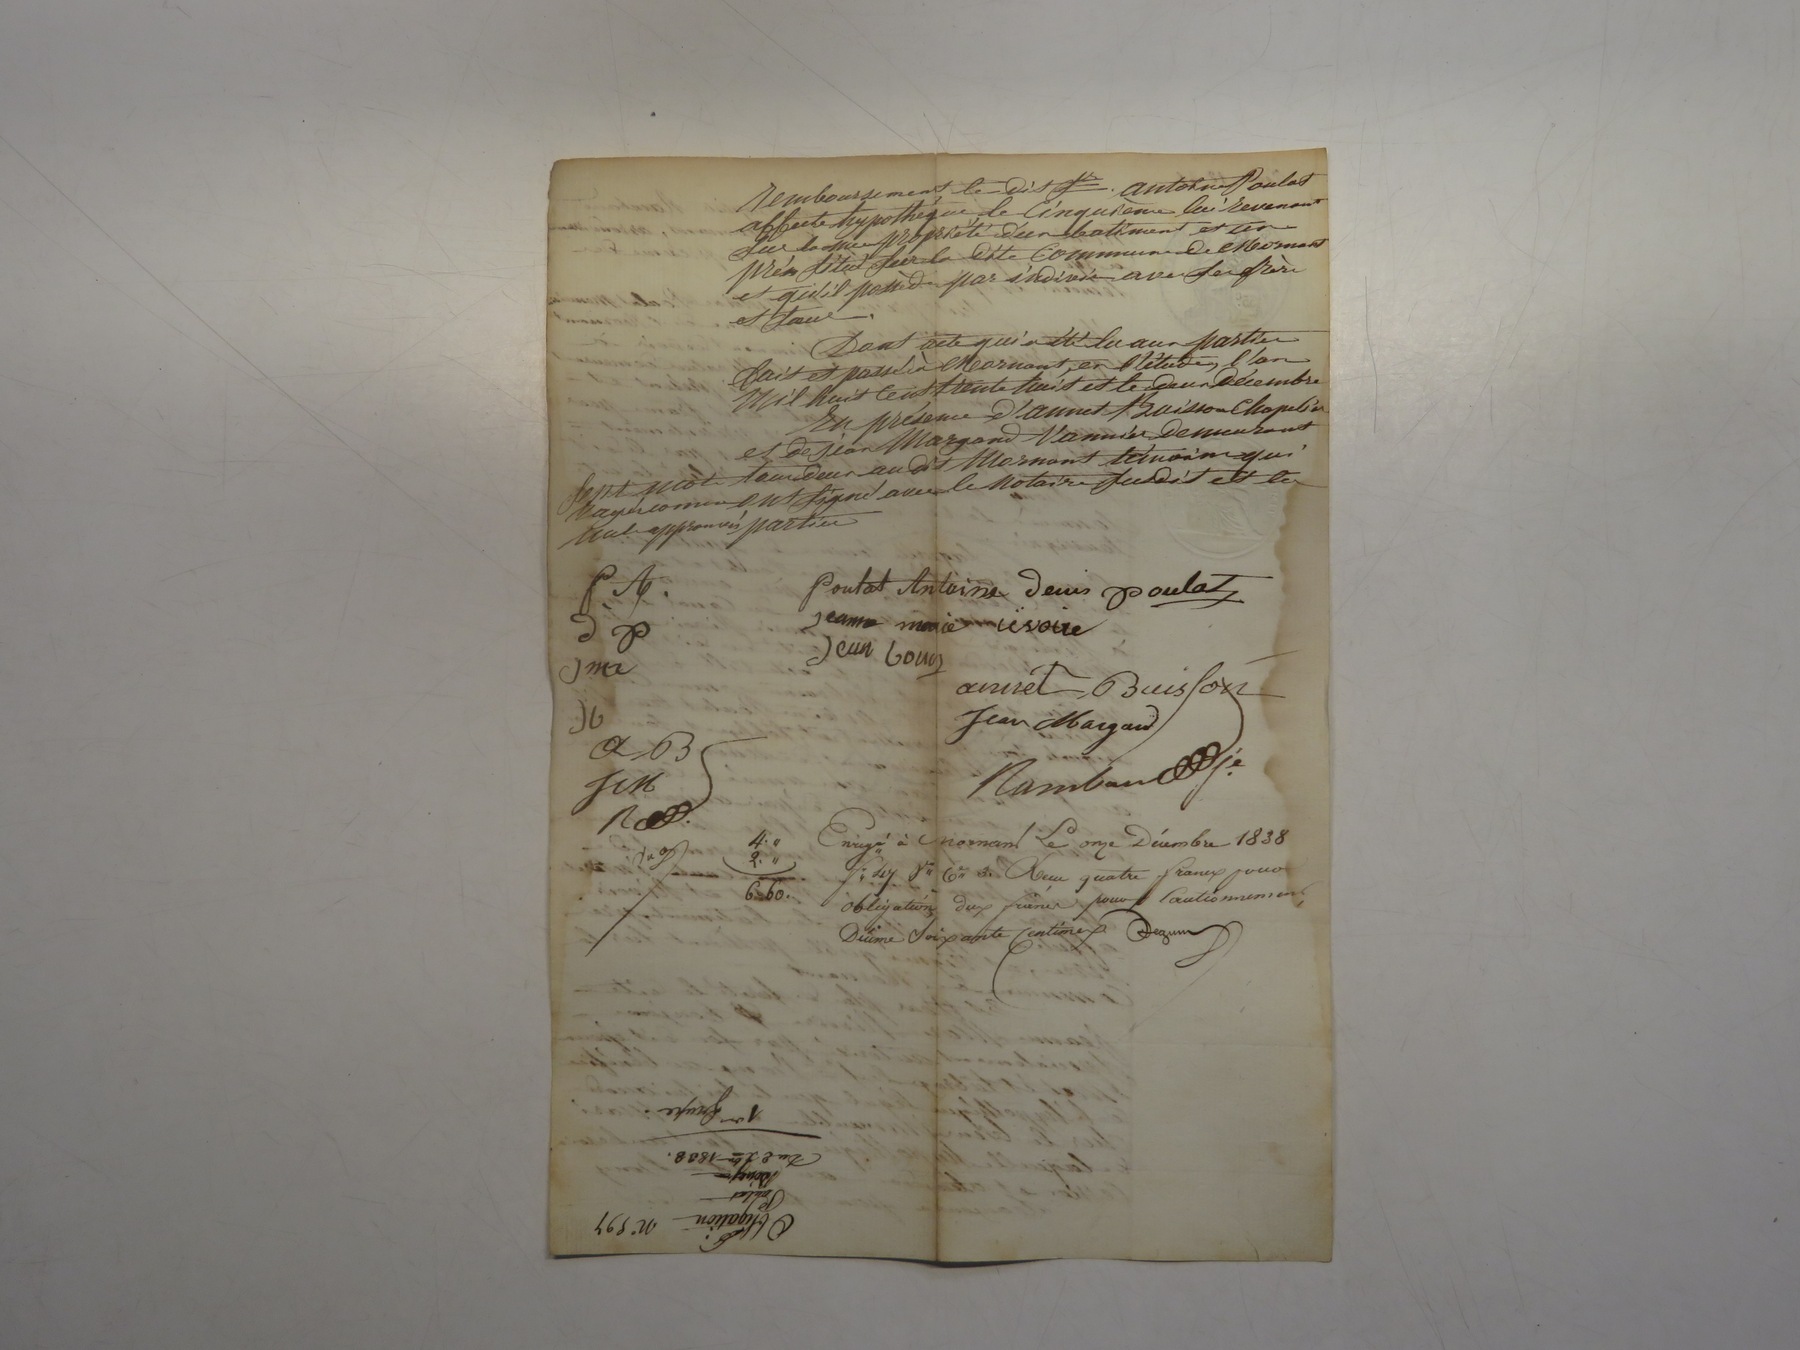 remboursement le dit Sr. antoine Poulat
affecte hypothèque le Cinquième lui revenant
Sur la nue propriété d'un batiment et un
prés Situé Sur la dite Commune de Mornant
et qu'il possède par indivis avec Ses frère
et Sœur.
Dont acte qui a été lu aux parties
fait et passé à Mornant, en l'étude, l'an
Mil huit Cent trente huit et le deux Décembre
En présence d'annet Buisson Chapelier
et de Jean Margand Vannier Demeurant
Sept mots tous deux au dit Mornant témoins qui
rayés comme ont Signé avec le Notaire Susdit et les
nuls approuvés parties
P. A. Poulat Antoine Denis poulat
D P jeanne marie
J m Jean
J b annet Buisson
a B Jean Margand
J M
R Rambau
4. "
2. "
6. 60.
Enregé à Mornant Le onze Décembre 1838
Reçu quatre francs pour
obligation, deux francs pour Cautionnement,
Dixième Soixante Centimes
N° 597
Obligation
Poulat
Du 2 Xbre 1838.
1ere Grosse